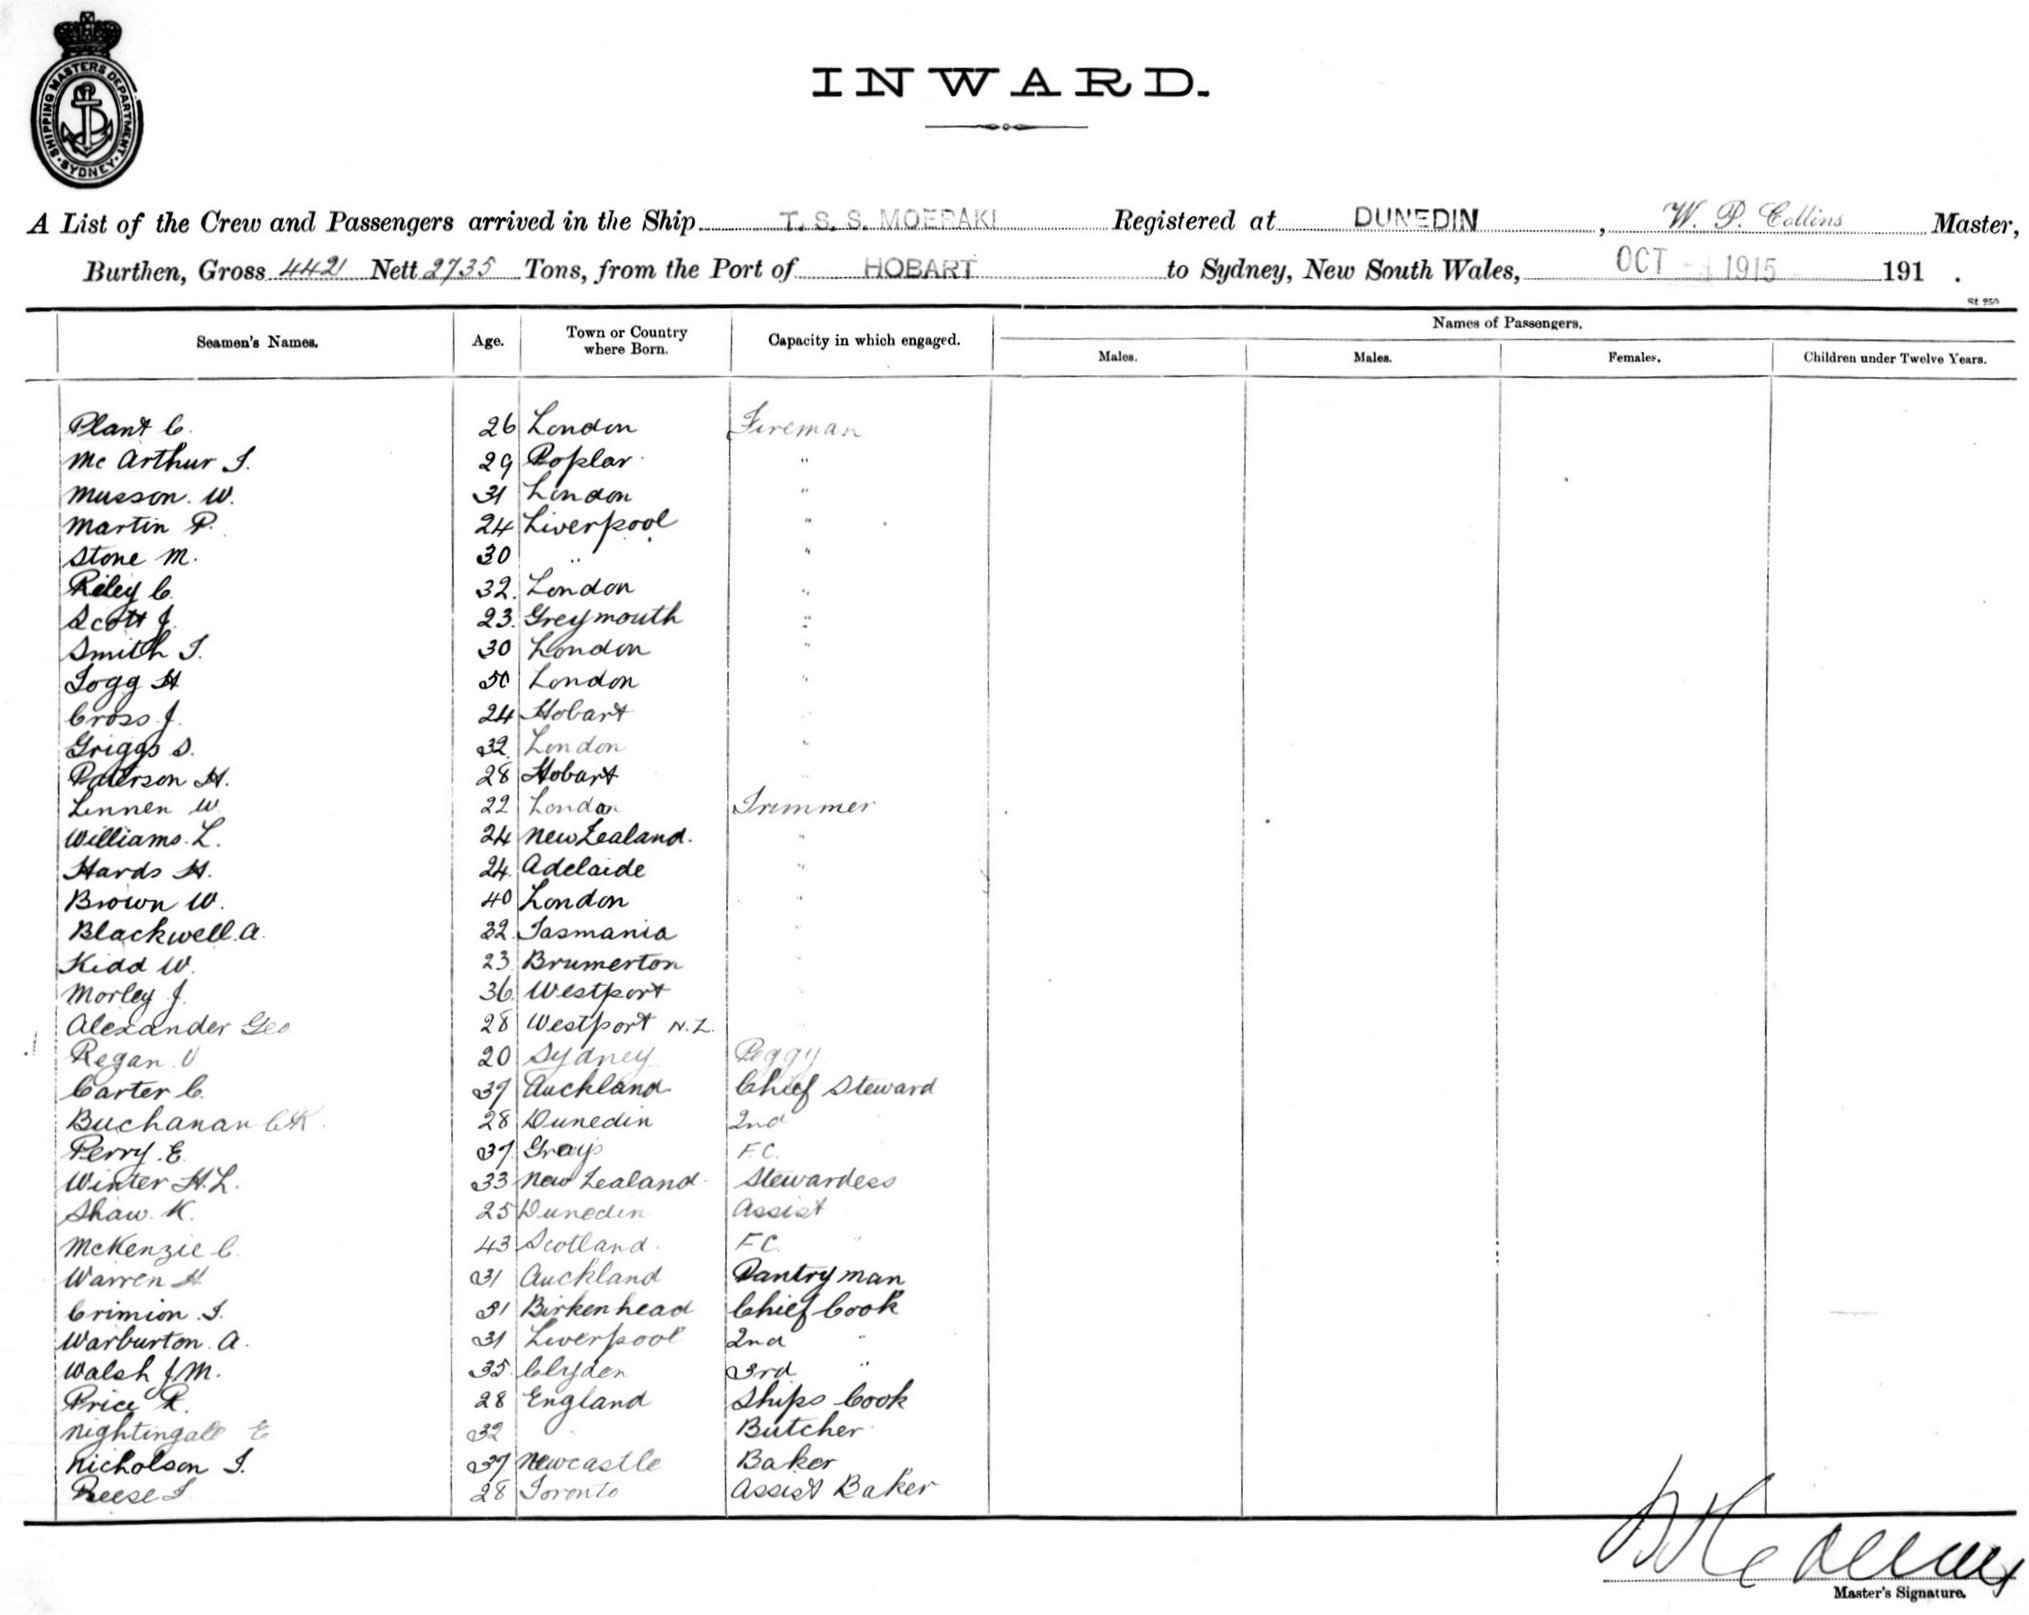 SHIPPING MASTERS DEPARTMENT
SYDNEY
INWARD.
A List of the Crew and Passengers arrived in the Ship T. S. S. MOERAKI Registered at DUNEDIN, W. P. Collins Master,
Burthen, Gross 4421 Nett 2735 Tons, from the Port of HOBART to Sydney, New South Wales, OCT - 4 1915 191 .
St 250
Names of Passengers.
Seamen's Names. Age. Town or Country where Born. Capacity in which engaged. Males. Males. Females. Children under Twelve Years.
Plant C. 26 London Fireman
Mc Arthur J. 29 Poplar "
Musson. W. 31 London "
Martin P. 24 Liverpool "
Stone M. 30 " "
Riley C. 32. London "
Scott J. 23. Greymouth "
Smith J. 30 London "
Togg H 50 London "
Cross J. 24 Hobart "
Griggs S. 32 London "
Paterson H. 28 Hobart "
Linnen W 22 London Trimmer
Williams. L. 24 New Zealand. "
Hards H. 24. Adelaide "
Brown W. 40 London "
Blackwell. A. 32 Tasmania "
Kidd W. 23 Brumerton "
Morley J. 36 Westport "
Alexander Geo 28 Westport N.Z.
Regan. V 20 Sydney Peggy
Carter C. 37 Auckland Chief Steward
Buchanan C K. 28 Dunedin 2nd
Perry. E. 37. Grays F.C.
Winter H.L. 33 New Zealand. Stewardess
Shaw. K. 25 Dunedin Assist
McKenzie C. 43 Scotland. F.C. "
Warren H 31 Auckland Pantryman
Crimion. J. 51 Birkenhead Chief Cook
Warburton. A. 31 Liverpool 2nd "
Walsh J.M. 35. Clyden 3rd "
Price R. 28 England Ships Cook
Nightingall E 32 " Butcher
Nicholson J. 37 Newcastle Baker
Reese J 28 Toronto Assist Baker
W P Collins
Master's Signature.